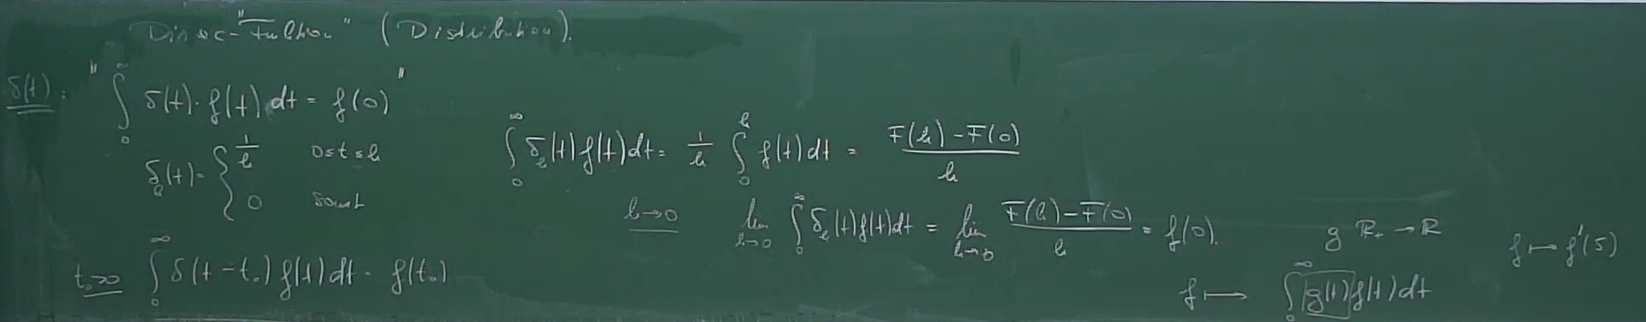 Dirac-"Funktion" (Distribution).
δ(t): "∫₀^∞ δ(t)·f(t) dt = f(0)"
δₕ(t) = { 1/h 0≤t≤h
0 sonst
t₀>0 ∫₀^∞ δ(t-t₀) f(t) dt = f(t₀)
∫₀^∞ δₕ(t) f(t) dt = 1/h ∫₀^h f(t) dt = (F(h)-F(0))/h
h→0 lim_{h→0} ∫₀^∞ δₕ(t) f(t) dt = lim_{h→0} (F(h)-F(0))/h = f(0).
g ℝ₊ → ℝ
f ↦ ∫₀^∞ g(t) f(t) dt
f ↦ f'(5)